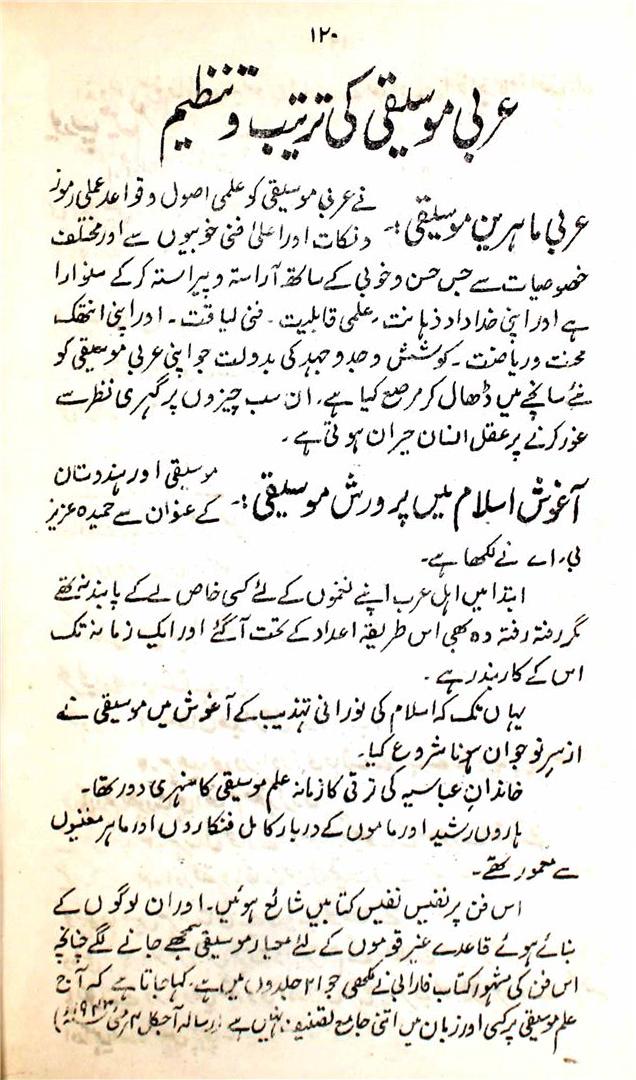 ۱۲۰
عربی موسیقی کی ترتیب و تنظیم
عربی ماہرین موسیقی :۔ نے عربی موسیقی کو علمی اصول و قواعد عملی رموز
و نکات اور اعلیٰ فنی خوبیوں سے اور مختلف
خصوصیات سے جس حسن و خوبی کے ساتھ آراستہ و پیراستہ کر کے سنوارا
ہے اور اپنی خداداد ذہانت، علمی قابلیت۔ فنی لیاقت۔ اور اپنی انتھک
محنت و ریاضت۔ کوشش و جدوجہد کی بدولت جو اپنی عربی موسیقی کو
نئے سانچے میں ڈھال کر مرصع کیا ہے۔ ان سب چیزوں پر گہری نظر سے
غور کرنے پر عقل انسان حیران ہوتی ہے۔
آغوش اسلام میں پرورش موسیقی :۔ موسیقی اور ہندستان
کے عنوان سے حمیدہ عزیز
بی، اے نے لکھا ہے۔
ابتدا میں اہل عرب اپنے نغموں کے لئے کسی خاص لے کے پابند نہ تھے
مگر رفتہ رفتہ وہ بھی اس طریقہ اعداد کے تحت آگئے اور ایک زمانہ تک
اس کے کاربند رہے۔
یہاں تک کہ اسلام کی نورانی تہذیب کے آغوش میں موسیقی نے
ازسرِنو جوان ہونا شروع کیا۔
خاندانِ عباسیہ کی ترقی کا زمانہ علم موسیقی کا سنہری دور تھا۔
ہاروں رشید اور ماموں کے دربار کامل فنکاروں اور ماہر مغنیوں
سے معمور تھے۔
اس فن پر نفیس نفیس کتابیں شائع ہوئیں۔ اور ان لوگوں کے
بنائے ہوئے قاعدے غیر قوموں کے لئے معیار موسیقی سمجھے جانے لگے چنانچہ
اس فن کی مشہور کتاب فارابی نے لکھی جو ۲۱ جلدوں میں ہے۔ کہا جاتا ہے کہ آج
علم موسیقی پر کسی اور زبان میں اتنی جامع تصنیف نہیں ہے (رسالہ آجکل